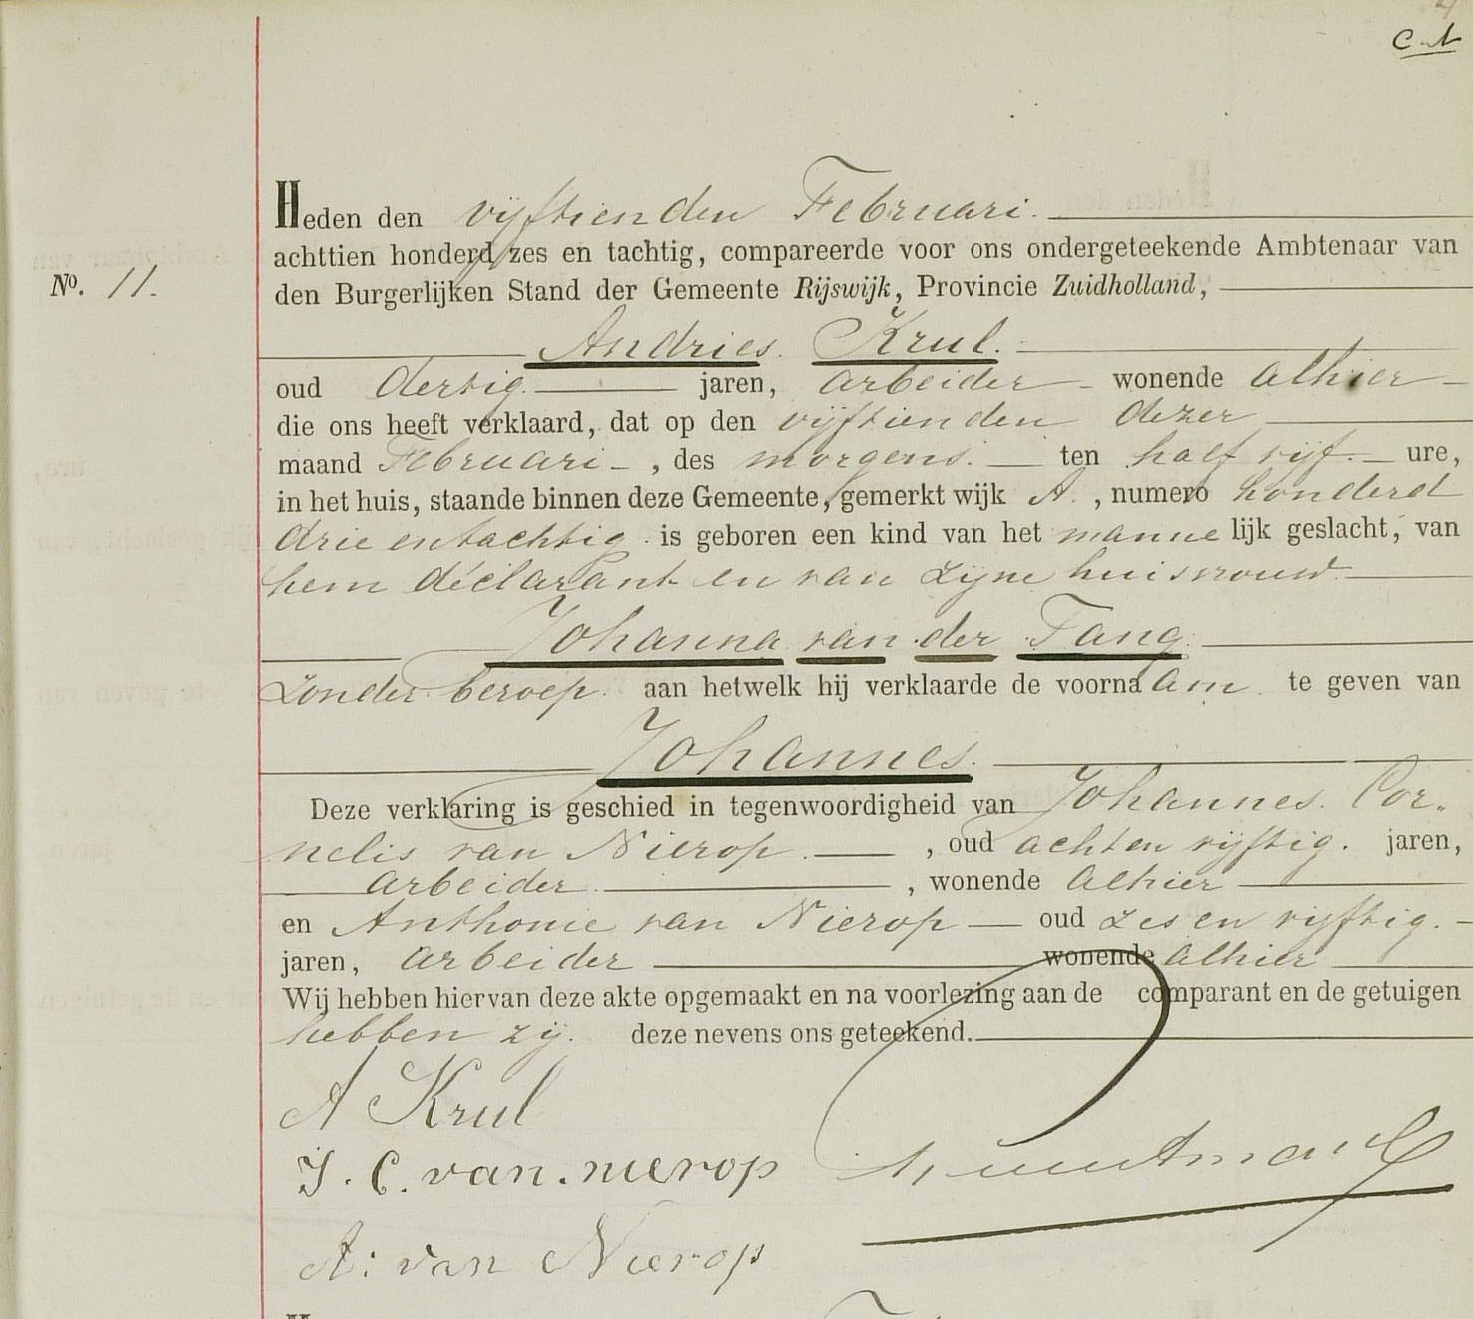 Heden den vijftienden Februari.
achttien honderd zes en tachtig, compareerde voor ons ondergeteekende Ambtenaar van
No. 11.
den Burgerlijken Stand der Gemeente Rijswijk, Provincie Zuidholland,
Andries Krul.
oud dertig jaren, arbeider wonende alhier
die ons heeft verklaard, dat op den vijftienden dezer
maand Februari, des morgens. ten half vijf. ure,
in het huis, staande binnen deze Gemeente, gemerkt wijk A., numero honderd
drie en tachtig. is geboren een kind van het mannelijk geslacht, van
hem déclarant en van zijne huisvrouw
Johanna van der Tang.
zonder beroep. aan hetwelk hij verklaarde de voornaam te geven van
Johannes.
Deze verklaring is geschied in tegenwoordigheid van Johannes Cor-
nelis van Nierop., oud acht en vijftig. jaren,
arbeider, wonende alhier
en Anthonie van Nierop oud zes en vijftig.
jaren, arbeider wonende alhier
Wij hebben hiervan deze akte opgemaakt en na voorlezing aan de comparant en de getuigen
hebben zij. deze nevens ons geteekend.
A Krul
J. C. van. nierop
A: van Nierop